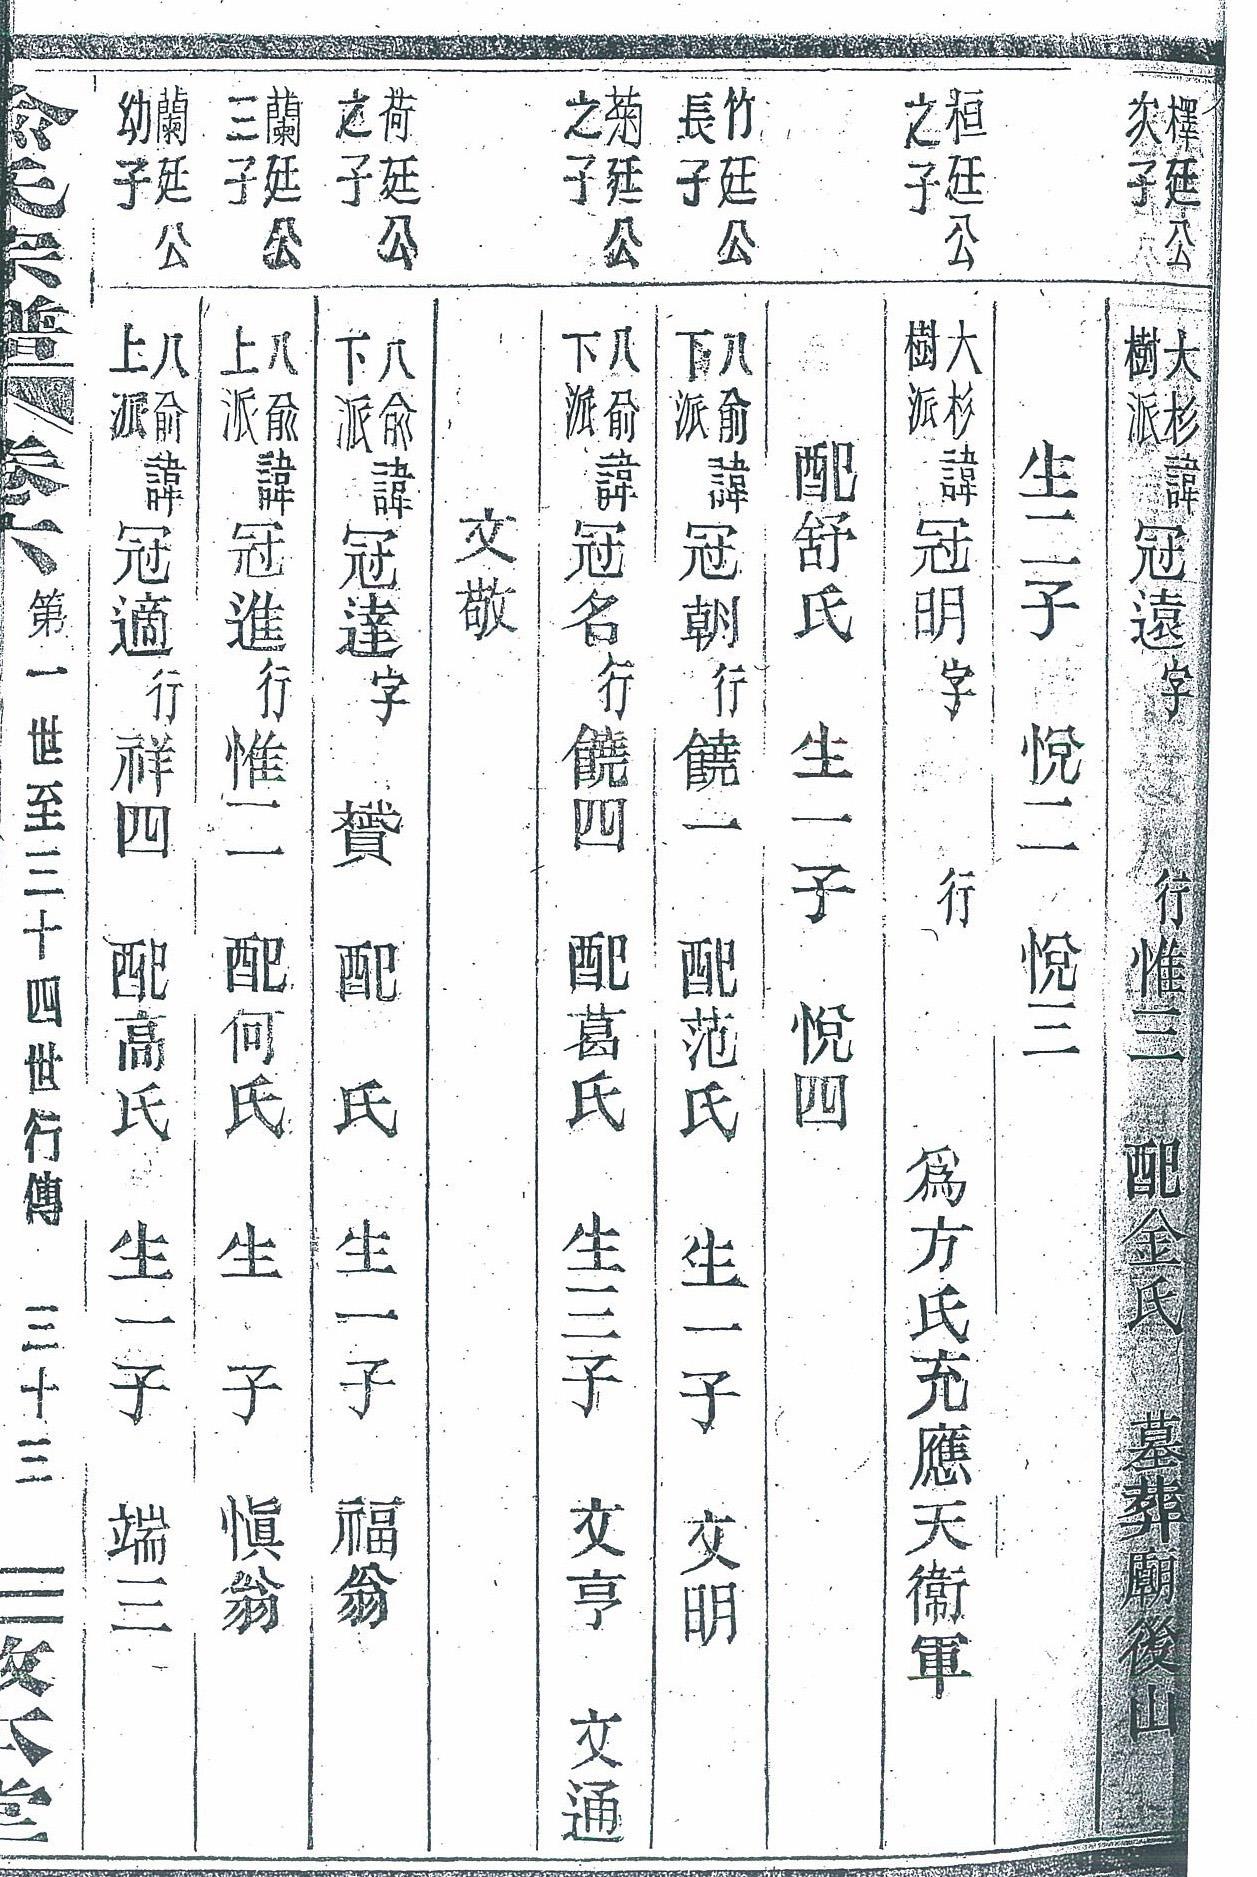 檡廷公次子 大杉樹派 諱冠遠 字 行惟三 配金氏 墓葬廟後山
生二子 悅二 悅三
桓廷公之子 大杉樹派 諱冠明 字 行 為方氏充應天衞軍
配舒氏 生一子 悅四
竹廷公長子 八俞下派 諱冠朝 行饒一 配范氏 生一子 文明
菊廷公之子 八俞下派 諱冠名 行饒四 配葛氏 生三子 文亨 文通
文敬
荷廷公之子 八俞下派 諱冠達 字 贇 配 氏 生一子 福翁
蘭廷公三子 八俞上派 諱冠進 行惟二 配何氏 生 子 愼翁
蘭廷公幼子 八俞上派 諱冠適 行祥四 配高氏 生一子 端三
俞氏宗譜 卷六 第一世至三十四世行傳 三十三